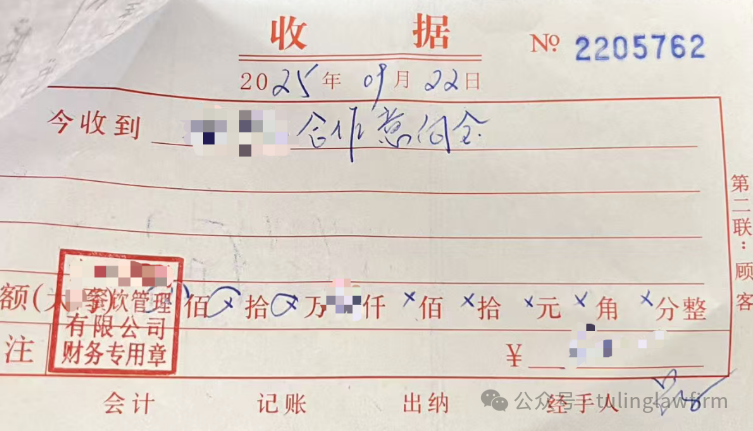 收 据
№ 2205762
2025年09月22日
今收到 合作意向金
第二联：顾客
额(大写) 佰 拾 万 仟 × 佰 × 拾 × 元 × 角 × 分整
餐饮管理
有限公司
财务专用章
注
¥
会计 记账 出纳 经手人
公众号 · tulinglawfirm